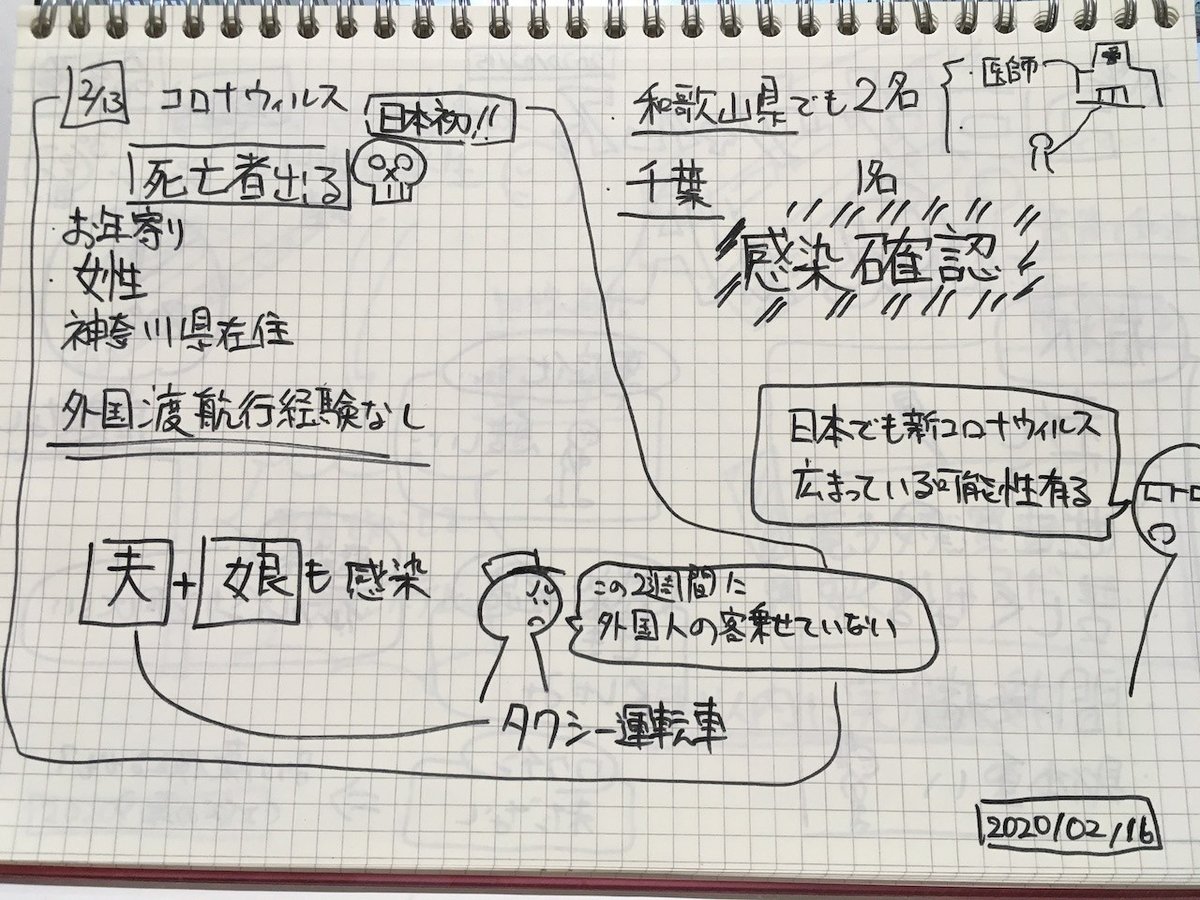 2/13 コロナウィルス
日本初!!
死亡者出る
お年寄り
女性
神奈川県在住
外国渡航行経験なし
夫+娘も感染
この2週間に
外国人の客乗せていない
タクシー運転車
和歌山県でも2名
医師
千葉 1名
感染確認
日本でも新コロナウィルス
広まっている可能性有る
2020/02/16